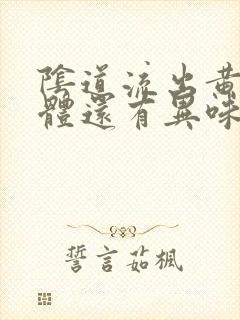 陰道流出黃
體還有異味
誓言茹楓